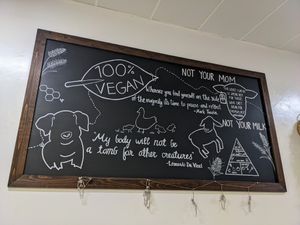 100%
VEGAN
NOT YOUR MOM
Whenever you find yourself on the side
of the majority its time to pause and reflect
-Mark Twain
NOT YOUR MILK
"My body will not be
a tomb for other creatures"
-Leonardo Da Vinci